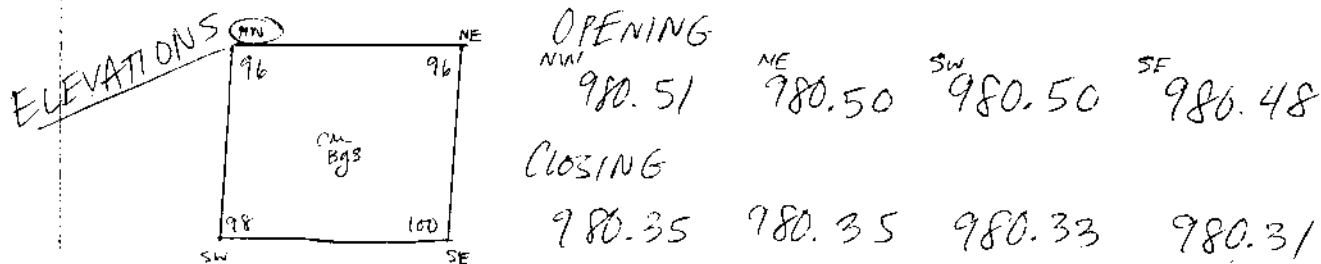 ELEVATIONS
NW NE
96 96
cm
Bgs
98 100
SW SE
OPENING
NW NE SW SE
980.51 980.50 980.50 980.48
CLOSING
980.35 980.35 980.33 980.31